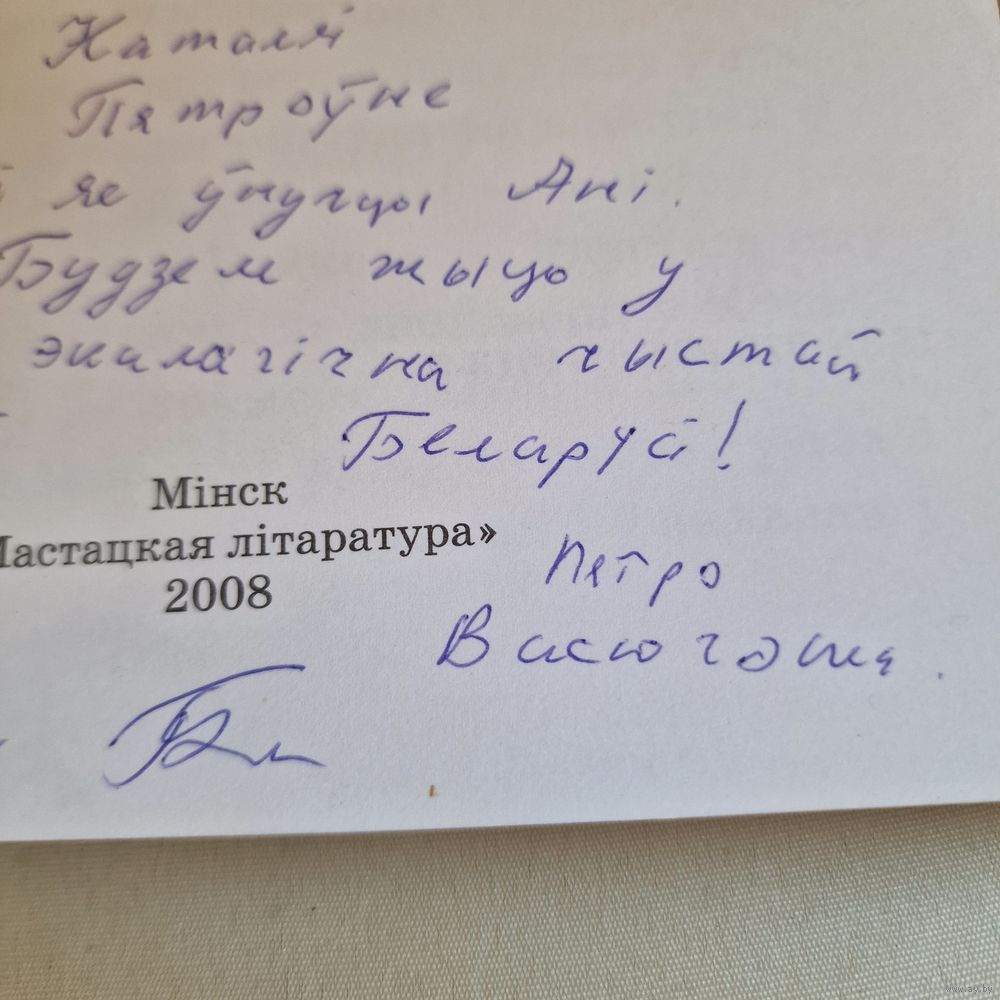 Наталлі
Пятроўне
і яе ўнучцы Ані.
Будзем жыць у
экалагічна чыстай
Беларусі!
Мінск
Мастацкая літаратура»
2008
Пятро
Васючэнка.
www.ay.by